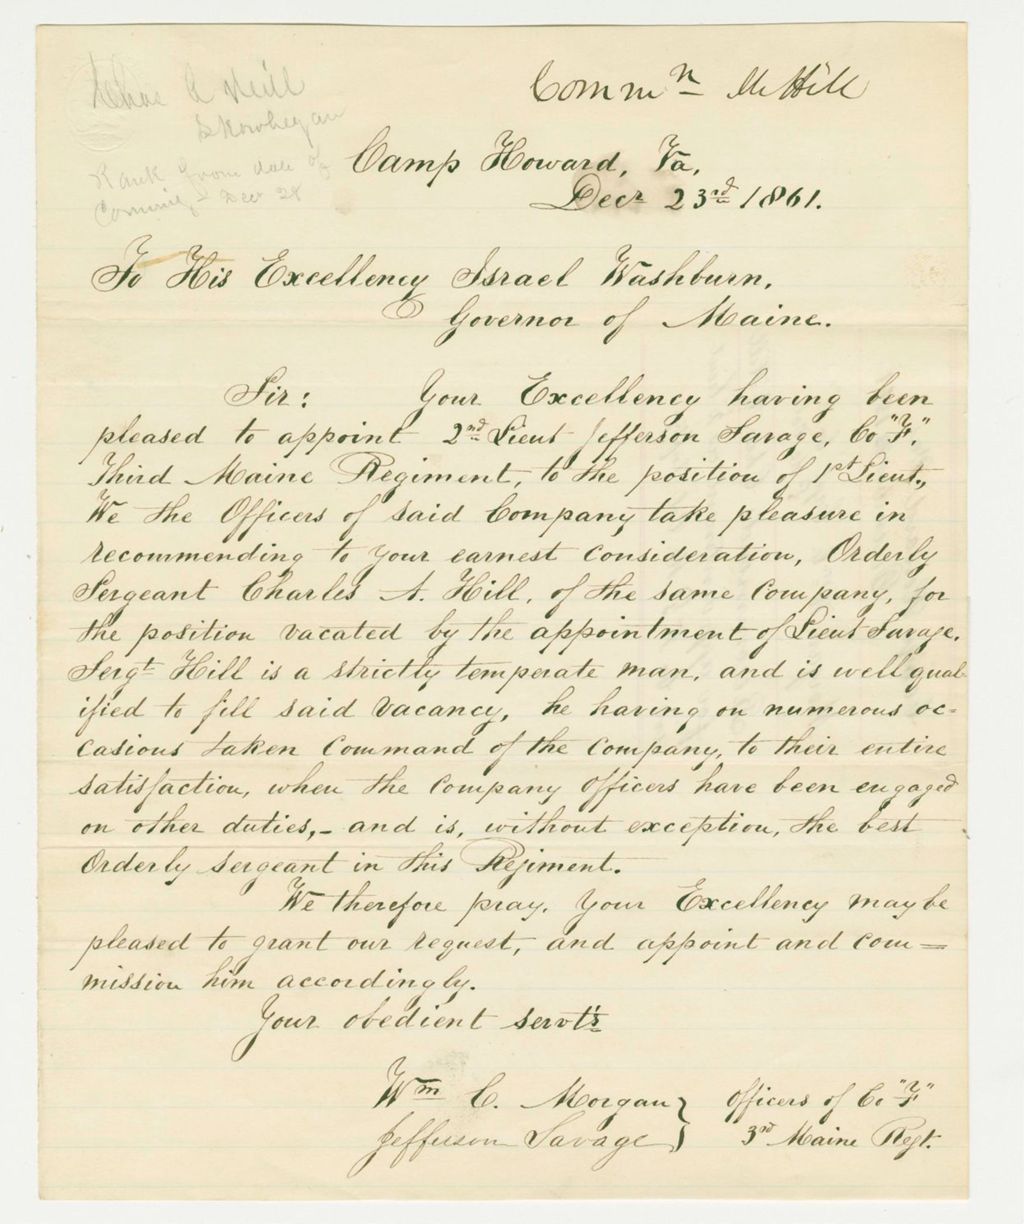 Chas A Hill
Skowhegan
Rank from date of
Comming - Dec 28
Commn Mr Hill
Camp Howard, Va,
Decr 23rd 1861.
To His Excellency Israel Washburn,
Governor of Maine.
Sir: Your Excellency having been
pleased to appoint 2nd Lieut Jefferson Savage, Co "F",
Third Maine Regiment, to the position of 1st Lieut.,
We the Officers of said Company take pleasure in
recommending to your earnest consideration, Orderly
Sergeant Charles A. Hill, of the same Company, for
the position vacated by the appointment of Lieut Savage.
Sergt Hill is a strictly temperate man, and is well qual-
ified to fill said vacancy, he having on numerous oc-
casions taken command of the Company, to their entire
satisfaction, when the Company officers have been engaged
on other duties,- and is, without exception, the best
Orderly Sergeant in this Regiment.
We therefore pray, Your Excellency may be
pleased to grant our request, and appoint and com=
mission him accordingly.
Your obedient servt's
Wm C. Morgan } Officers of Co "F"
Jefferson Savage } 3rd Maine Regt.